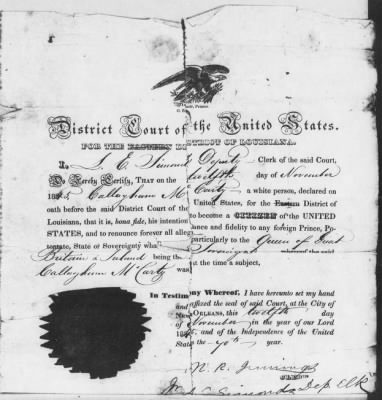 District Court of the United States.
FOR THE EASTERN DISTRICT OF LOUISIANA.
I, L E Simonds Deputy Clerk of the said Court,
Do Hereby Certify, That on the twelfth day of November
184 Callaghan Mc Carty a white person, declared on
oath before the said District Court of the United States, for the Eastern District of
Louisiana, that it is, bona fide, his intention to become a CITIZEN of the UNITED
STATES, and to renounce forever all allegiance and fidelity to any foreign Prince, Po-
tentate, State or Sovereignty whatever particularly to the Queen of Great
Britain & Ireland being the Sovereign whereof the said
Callaghan McCarty was at the time a subject.
In Testimony Whereof, I have hereunto set my hand
and affixed the seal of said Court, at the City of
New ORLEANS, this twelfth day
of November in the year of our Lord
184 and of the Independence of the United
States the year.
N. R. Jennings
CLERK
Simonds Dep Clk